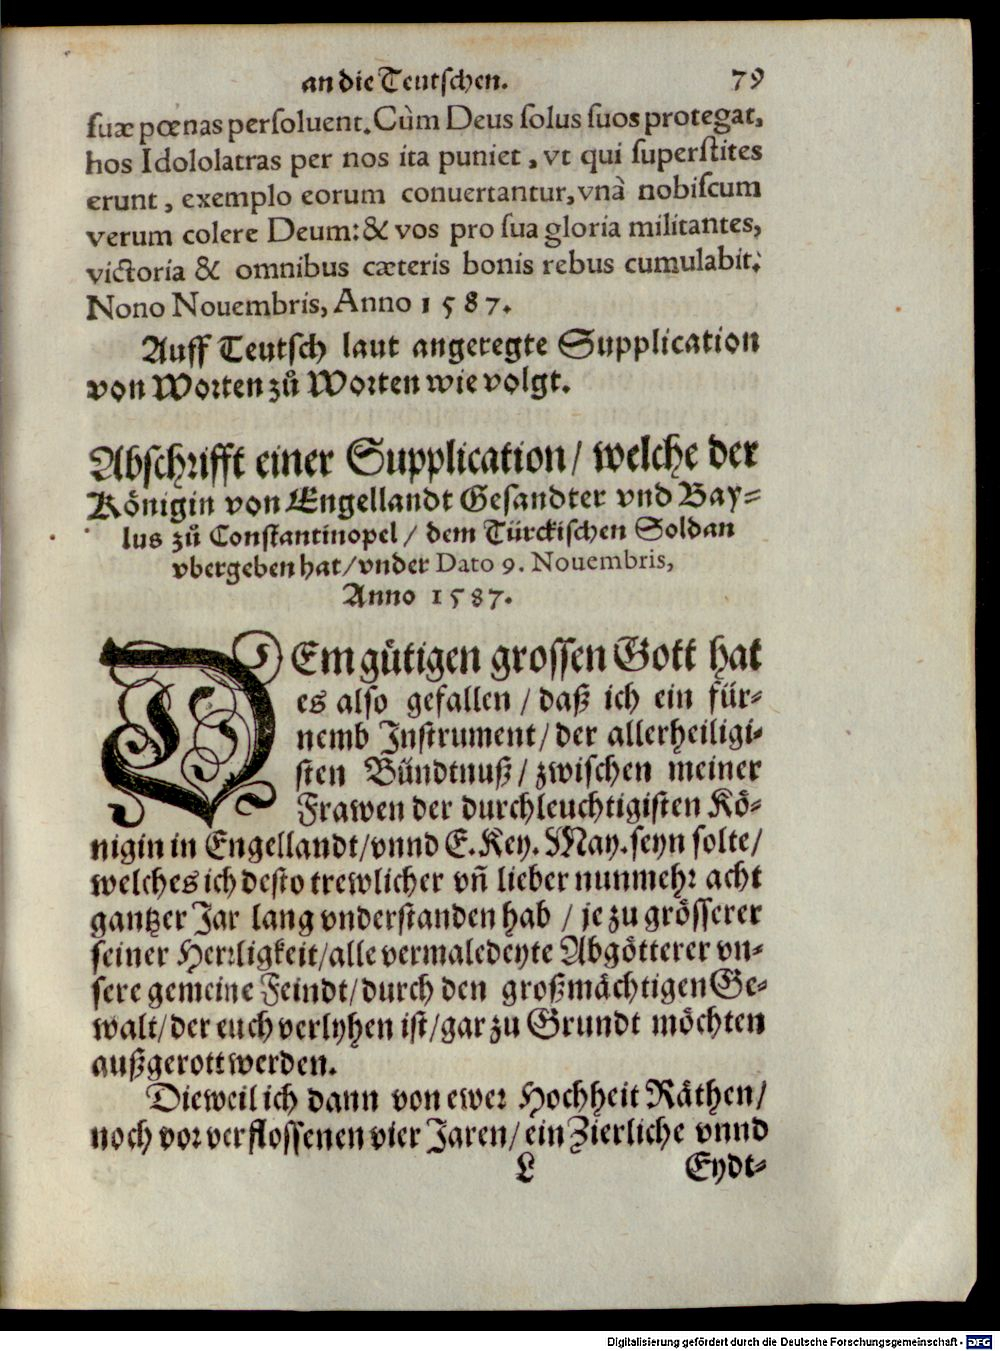 an die Teutschen. 79
suæ pœnas persoluent. Cùm Deus solus suos protegat,
hos Idololatras per nos ita puniet, vt qui superstites
erunt, exemplo eorum conuertantur, vnà nobiscum
verum colere Deum: & vos pro sua gloria militantes,
victoria & omnibus cæteris bonis rebus cumulabit.
Nono Nouembris, Anno 1587.
Auff Teutsch laut angeregte Supplication
von Worten zů Worten wie volgt.
Abschrifft einer Supplication / welche der
Königin von Engellandt Gesandter vnd Bay-
lus zů Constantinopel / dem Türckischen Soldan
vbergeben hat / vnder Dato 9. Nouembris,
Anno 1587.
DEm gütigen grossen Gott hat
es also gefallen / daß ich ein für-
nemb Instrument / der allerheiligi-
sten Bündtnuß / zwischen meiner
Frawen der durchleuchtigisten Kö-
nigin in Engellandt / vnnd E. Key. May. seyn solte /
welches ich desto trewlicher vñ lieber nunmehr acht
gantzer Jar lang vnderstanden hab / je zu grösserer
seiner Herrligkeit / alle vermaledeyte Abgötterer vn-
sere gemeine Feindt / durch den großmächtigen Ge-
walt / der euch verlyhen ist / gar zu Grundt möchten
außgerott werden.
Dieweil ich dann von ewer Hochheit Räthen /
noch vor verflossenen vier Jaren / ein Zierliche vnnd
L Eydt-
Digitalisierung gefördert durch die Deutsche Forschungsgemeinschaft - DFG